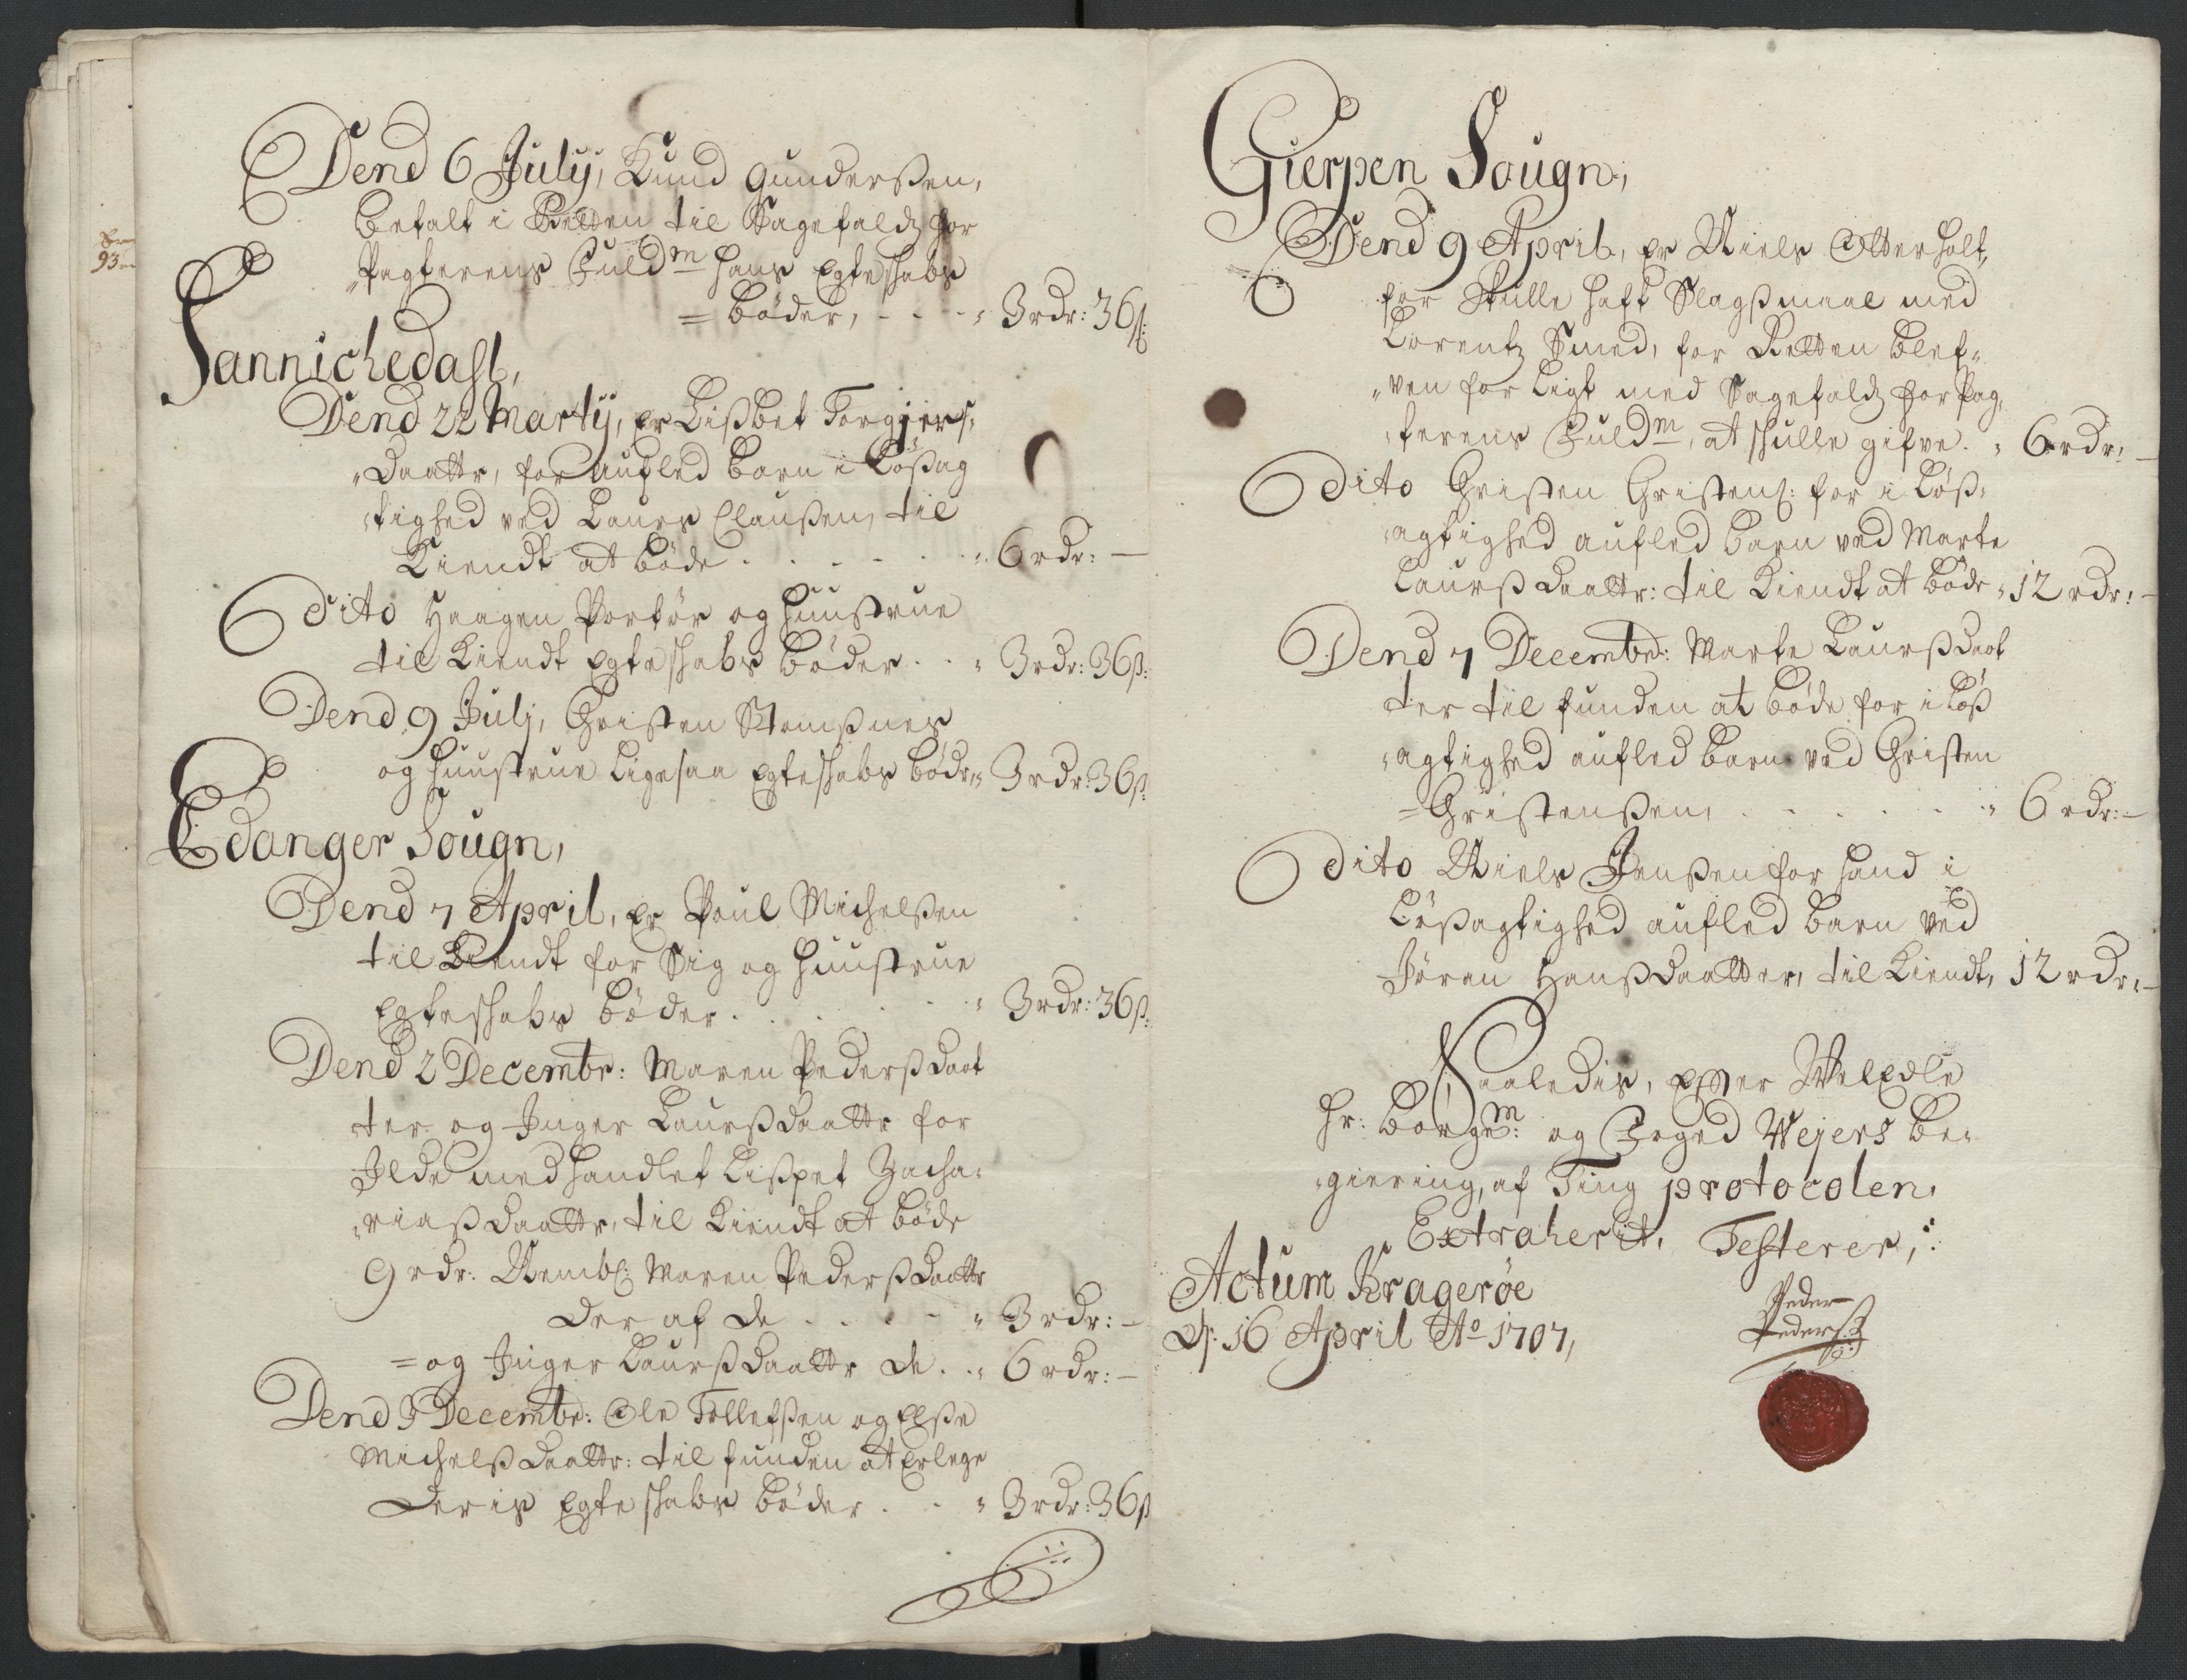 Dend 6 Julij, Knud Gunderßen,
betalt i Retten til Sagefald, for
Pagterens Fuldm hans Egteskabs
= bøder, - - - " 3 rdr: 36 ß:
Sannichedahl,
Dend 22 Martij, er Lißbet Torgiers-
Daattr, for aufled barn i Lößag
tighed ved Laurs Claußen, til
Kiendt at bøde . . . . . " 6 rdr: —
Dito Haagen Portör og Huustrue
til Kiendt Egteskabs bøder . . " 3 rdr: 36 ß:
Dend 9 Julj, Christen
og Huustrue Ligesaa Egteskabs bødr, " 3 rdr: 36 ß:
Edanger Sougn,
Dend 7 April, er Poul Michelßen
til Kiendt for Sig og Huustrue
Egteskabs bøder . . . . . " 3 rdr: 36 ß:
Dend 2 Decembr: Maren Pederßdaat
ter og Inger Laurßdaattr for
Ilde medhandlet Lißpet Zacha-
riaßdaattr, til Kiendt at bøde
9 rdr: Nembl: Maren Pederßdaattr
der af de . . . . " 3 rdr: —
= og Inger Laurßdaattr de . . " 6 rdr: —
Dend 3 Decembr: Ole Tollefßen og Elße
Michelßdaattr: til funden at Erlege
Deris Egteskabs bøder . . . " 3 rdr: 36 ß
93
Gierpen Sougn,
Dend 9 April, er Niels Otterholt,
for Skulle haft Slagßmaal med
Lorentz Smed, for Retten blef-
"ven forligt med Sagefald, for Pag-
terens Fuldm, at skulle gifve . " 6 rdr: —
Dito Christen Christens: for i Löß-
agtighed aufled barn ved Marte
Laurßdaattr: til Kiendt at bøde " 12 rdr: —
Dend 7 Decembr: Marte Laurßdaat
ter til funden at bøde for i Löß
agtighed aufled barn ved Christen
= Christenßen, . . . . . . " 6 rdr: —
Dito Niels Jenßen for hand i
Lößagtighed aufled barn ved
Jören Hanßdaatter, til Kiendt, 12 rdr: —
Saaledis, efter WelEdle
Hr: Borgem: og Foged Wejers be-
giering, af Ting protocolen,
Extraherit, Testerer,
Actum Kragerøe
d: 16 April Ao 1707,
Peder
Pederß: